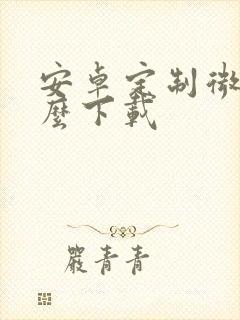 安卓定制微
麼下載
嚴青青